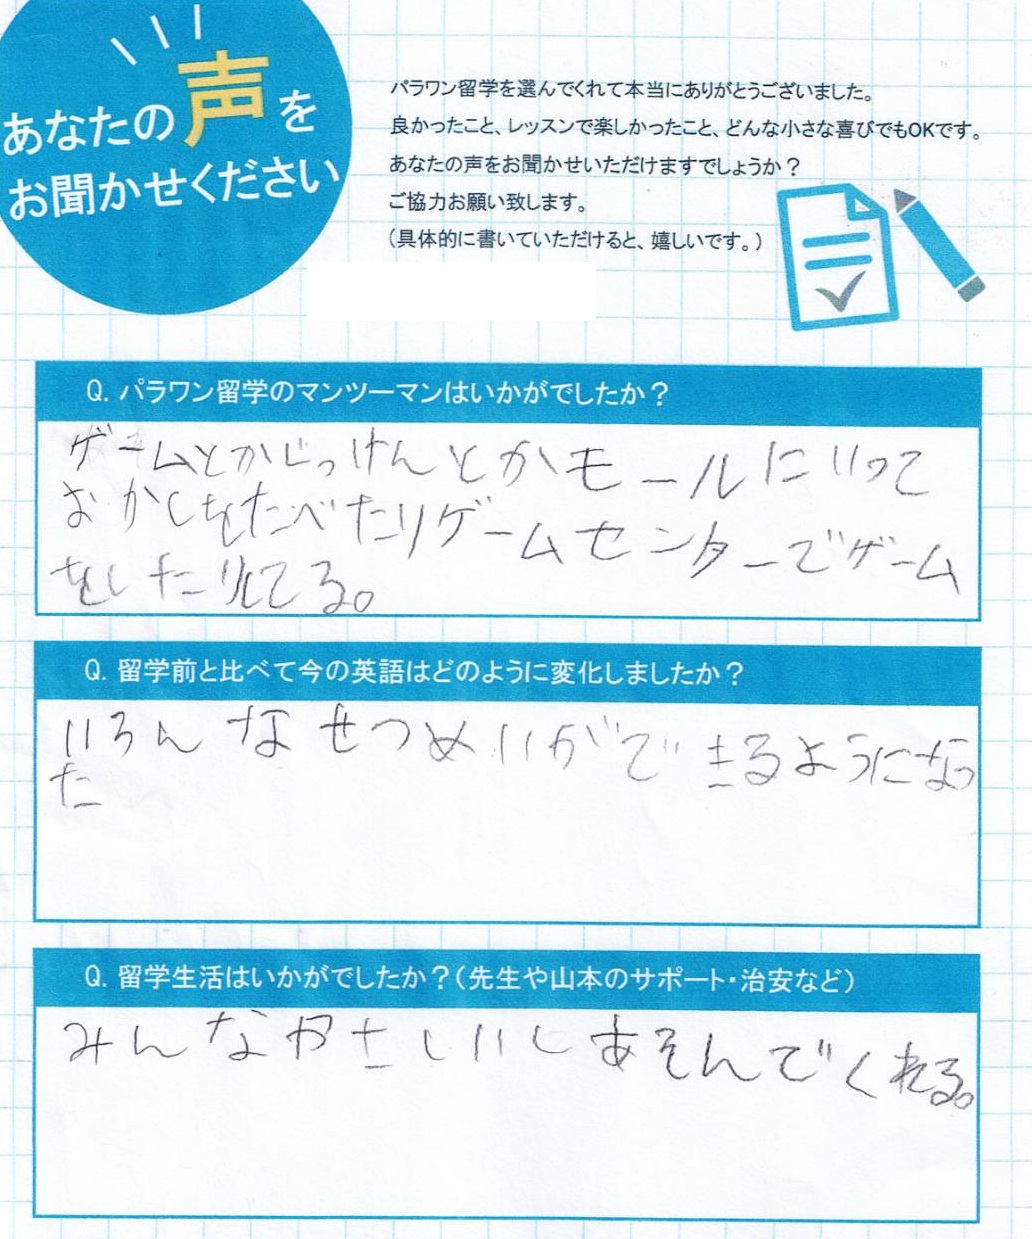 あなたの声を
お聞かせください
パラワン留学を選んでくれて本当にありがとうございました。
良かったこと、レッスンで楽しかったこと、どんな小さな喜びでもOKです。
あなたの声をお聞かせいただけますでしょうか？
ご協力お願い致します。
（具体的に書いていただけると、嬉しいです。）
Q. パラワン留学のマンツーマンはいかがでしたか？
ゲームとかじっけんとかモールにいって
おかしをたべたりゲームセンターでゲーム
をしたりしてる。
Q. 留学前と比べて今の英語はどのように変化しましたか？
いろんなせつめいができるようになっ
た
Q. 留学生活はいかがでしたか？（先生や山本のサポート・治安など）
みんなやさしいしあそんでくれる。